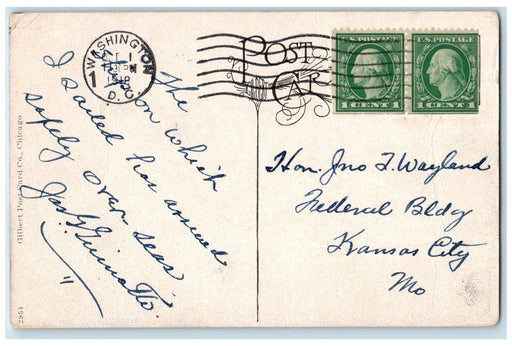 WASHINGTON
1
D.C.
POST
CARD
U.S. POSTAGE
1 CENT 1
U.S. POSTAGE
1 CENT 1
The
ship on which
I sailed has arrived
safely over seas
Hon. Jno F. Wayland
Federal Bldg
Kansas City
Mo
Gilbert Post Card Co., Chicago
2951